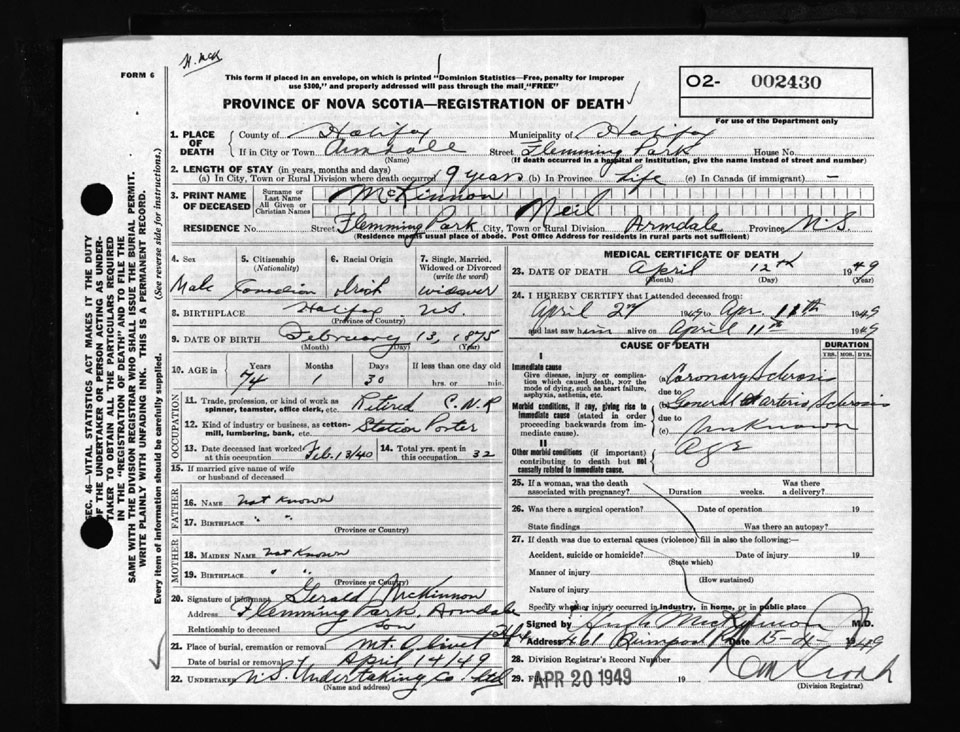 FORM 6
This form if placed in an envelope, on which is printed "Dominion Statistics—Free, penalty for improper
use $300," and properly addressed will pass through the mail "FREE"
O2- 002430
PROVINCE OF NOVA SCOTIA—REGISTRATION OF DEATH
For use of the Department only
1. PLACE OF DEATH County of Halifax Municipality of Halifax
If in City or Town Armdale Street Flemming Park House No.
(Name) (If death occurred in a hospital or institution, give the name instead of street and number)
2. LENGTH OF STAY (in years, months and days)
(a) In City, Town or Rural Division where death occurred 9 years (b) In Province Life (c) In Canada (if immigrant) —
3. PRINT NAME OF DECEASED
Surname or Last Name McKinnon
All Given or Christian Names Neil
RESIDENCE No. Street Flemming Park City, Town or Rural Division Armdale Province N.S.
(Residence means usual place of abode. Post Office Address for residents in rural parts not sufficient)
4. Sex 5. Citizenship (Nationality) 6. Racial Origin 7. Single, Married, Widowed or Divorced (write the word)
Male Canadian Irish widower
8. BIRTHPLACE Halifax N.S.
(Province or Country)
9. DATE OF BIRTH February 13, 1875
(Month) (Day) (Year)
10. AGE in Years Months Days If less than one day old
74 1 30 hrs. or min.
OCCUPATION
11. Trade, profession, or kind of work as
spinner, teamster, office clerk, etc. Retired C.N.R
12. Kind of industry or business, as cotton-
mill, lumbering, bank, etc. Station Porter
13. Date deceased last worked at this occupation Feb. 13/40 14. Total yrs. spent in this occupation 32
15. If married give name of wife
or husband of deceased
FATHER
16. NAME not Known
17. BIRTHPLACE " "
(Province or Country)
MOTHER
18. MAIDEN NAME not Known
19. BIRTHPLACE " "
(Province or Country)
20. Signature of informant Gerald McKinnon
Address Flemming Park, Armdale
Relationship to deceased son
21. Place of burial, cremation or removal Mt. Olivet Hfx
Date of burial or removal April 14/49
22. UNDERTAKER N.S. Undertaking Co. Ltd
(Name and address)
MEDICAL CERTIFICATE OF DEATH
23. DATE OF DEATH April 12th 1949
(Month) (Day) (Year)
24. I HEREBY CERTIFY that I attended deceased from:
April 27 1945 to Apr. 11th 1949
and last saw him alive on April 11th 1949
CAUSE OF DEATH DURATION
YRS. MOS. DYS.
I
Immediate cause
Give disease, injury or complication which caused death, NOT the mode of dying, such as heart failure, asphyxia, asthenia, etc.
(a) Coronary Sclerosis
due to
Morbid conditions, if any, giving rise to immediate cause (stated in order proceeding backwards from immediate cause).
(b) General Arterio Sclerosis
due to
(c) Unknown
II
Other morbid conditions (if important) contributing to death but not causally related to immediate cause.
Age
25. If a woman, was the death associated with pregnancy? Duration weeks. Was there a delivery?
26. Was there a surgical operation? Date of operation 19
State findings Was there an autopsy?
27. If death was due to external causes (violence) fill in also the following:
Accident, suicide or homicide? Date of injury 19
(State which)
Manner of injury
(How sustained)
Nature of injury
Specify whether injury occurred in industry, in home, or in public place
Signed by Hugh MacKinnon M.D.
Address 461 Date 15-4- 1949
28. Division Registrar's Record Number
29. Filed APR 20 1949 19
(Division Registrar)
SEC. 46—VITAL STATISTICS ACT MAKES IT THE DUTY
OF THE UNDERTAKER OR PERSON ACTING AS UNDER-
TAKER TO OBTAIN ALL THE PARTICULARS REQUIRED
IN THE "REGISTRATION OF DEATH" AND TO FILE THE
SAME WITH THE DIVISION REGISTRAR WHO SHALL ISSUE THE BURIAL PERMIT.
WRITE PLAINLY WITH UNFADING INK. THIS IS A PERMANENT RECORD.
Every item of information should be carefully supplied. (See reverse side for instructions.)